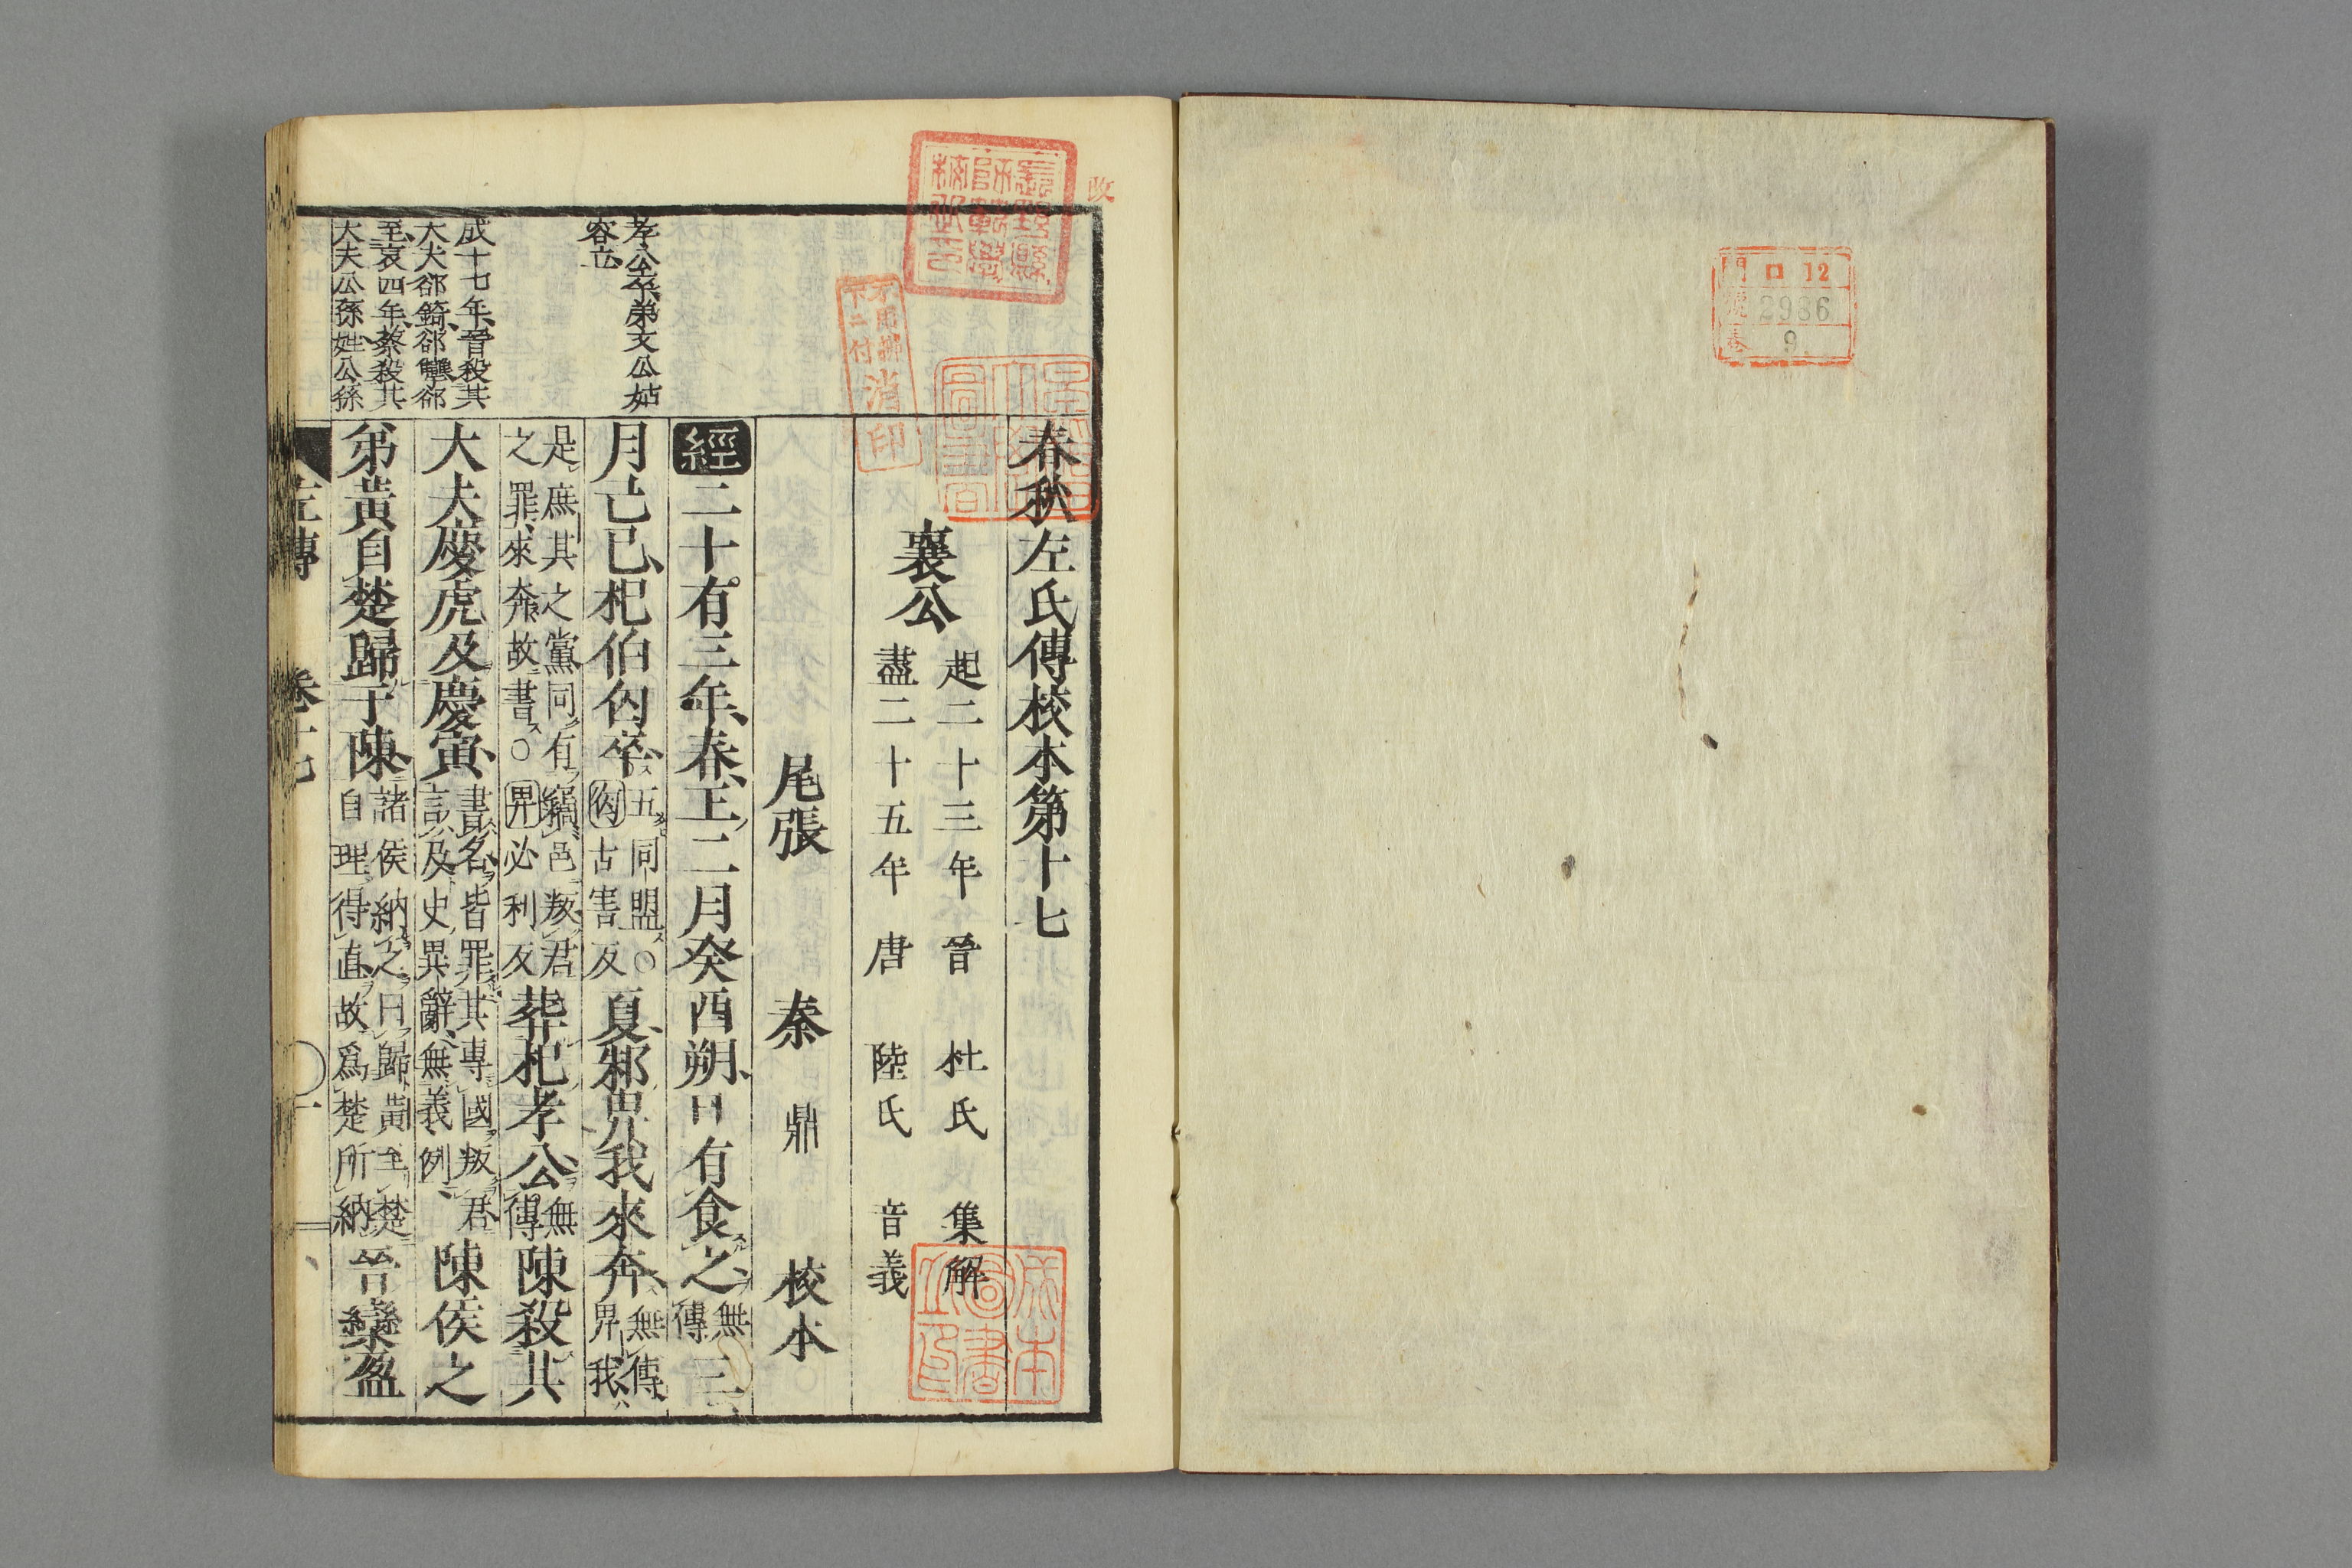 門 ロ 12
號 2986
卷 9
改
長野縣
師範學
校之印
不用拂
下ニ付
消印
春秋左氏傳校本第十七
襄公
起二十三年 晉 杜氏 集解
盡二十五年 唐 陸氏 音義
尾張 秦 鼎 校本
經二十有三年、春、王二月癸酉朔、日有食之、無傳三
月己巳、杞伯匃卒、五同盟○匃古害反夏、邾畀我來奔、無傳、畀我
是庶其之黨同有竊邑叛君之罪來奔故書○畀必利反葬杞孝公、無傳陳殺其
大夫慶虎及慶寅、書名皆罪其專國叛君言及史異辭、無義例、陳侯之
弟黃自楚歸于陳、諸侯納之曰歸黃至楚自理得直故爲楚所納晉欒盈
孝公卒弟文公姑
容立
成十七年、晉殺其
大夫郤錡、郤犨、郤
至、哀四年、蔡殺其
大夫公孫姓、公孫
左傳 卷十七 ○一